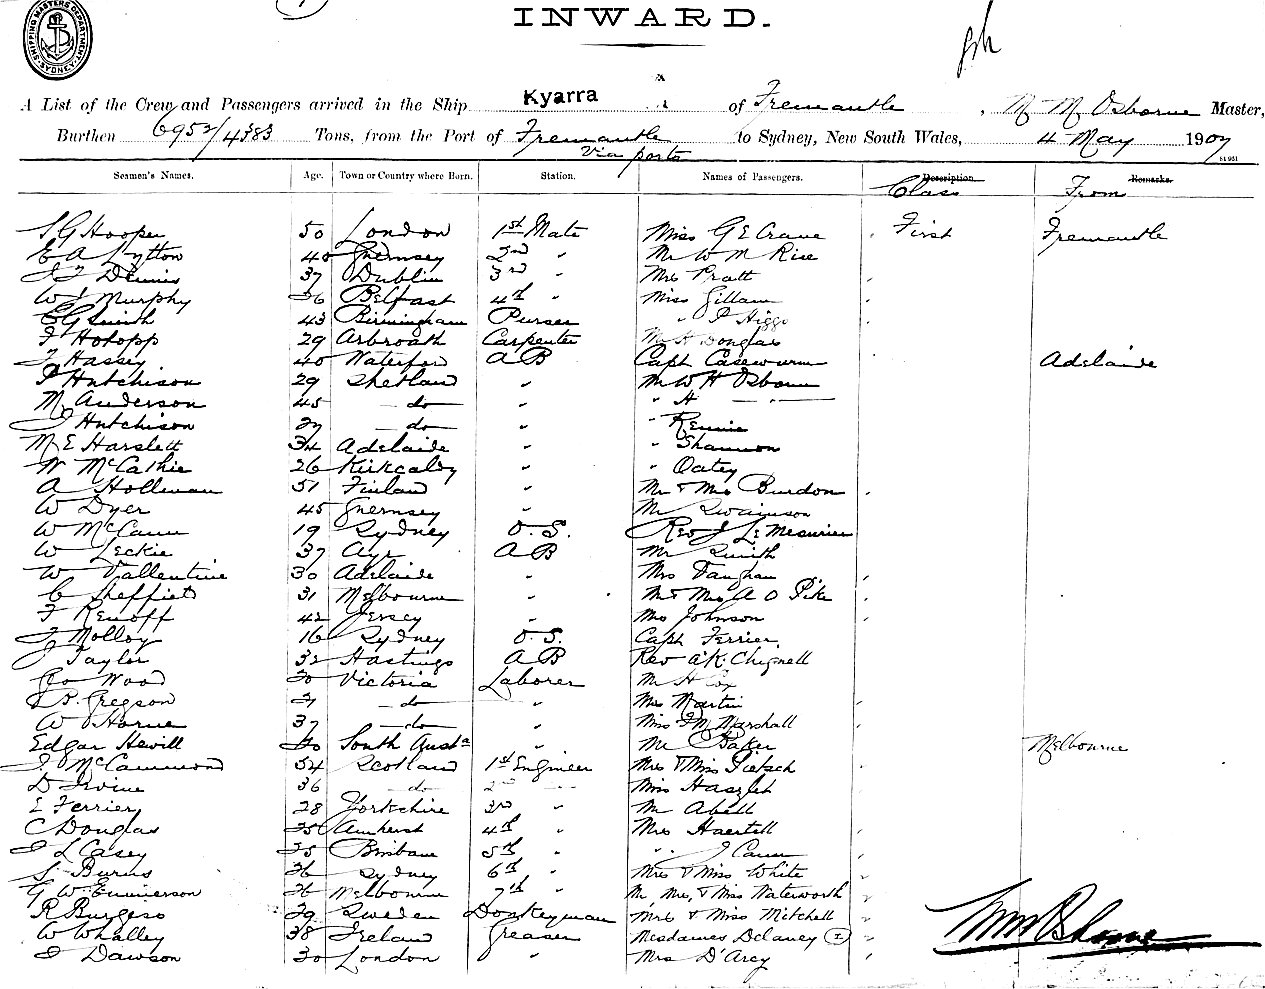 SHIPPING MASTERS DEPARTMENT SYDNEY
INWARD.
A List of the Crew and Passengers arrived in the Ship Kyarra of Fremantle, M M Osborne Master,
Burthen 6952/4383 Tons, from the Port of Fremantle to Sydney, New South Wales, 4 May 1907
Via ports
Seamen's Names. Age. Town or Country where Born. Station. Names of Passengers. Description. Remarks.
Class From
S G Hooper 50 London 1st Mate Miss G E Crane First Fremantle
E A Lytton 40 Guernsey 2nd " Mr W M Rice
J F Dennis 37 Dublin 3rd " Mrs Pratt
W J Murphy 36 Belfast 4th " Miss Gillam
E G Smith 43 Birmingham Purser " P Higgs
J Hotopp 29 Arbroath Carpenter Mr H Douglas
J Hassey 40 Waterford A B Capt Casewurm Adelaide
P Hutchison 29 Shetland " Mr W H Osborn
M Anderson 45 do " " H
J Hutchison 27 do " " Rennie
M E Harslett 34 Adelaide " " Shannon
W McCathie 26 Kirkcaldy " " Oatey
A Hollman 51 Finland " Mr & Mrs Burdon
W Dyer 45 Guernsey " Mr Swainson
W McCann 19 Sydney O.S. Rev J Le Mesurier
W Leckie 37 Ayr A B Mr Smith
W Vallentine 30 Adelaide " Mrs Vaughan
C Sheffield 31 Melbourne " Mr & Mrs A O Pike
F Renoff 42 Jersey " Mrs Johnson
J Molloy 16 Sydney O.S. Capt Ferrier
J Taylor 32 Hastings A B Rev A K Chignell
Geo Wood 30 Victoria Laborer Mr H Cox
B. Gregson do " Mrs Martin
W Horne 37 do " Miss F M Marshall
Edgar Hewill 20 South Austa " Mr Baker Melbourne
J McCammond 54 Scotland 1st Engineer Mrs & Miss Pietsch
D Irvine 36 do 2nd Miss Haszleh
E Ferrier 28 Yorkshire 3rd " Mr Abell
C Douglas 25 Amherst 4th " Mrs Haertell
J L Casey 25 Brisbane 5th " " J Cann
S Burns 26 Sydney 6th " Mrs & Miss White
G W Gunnerson 26 Melbourne 7th " Mr, Mrs, & Miss Waterworth
R Burgess 39 Sweden Donkeyman Mrs & Miss Mitchell
W Whalley 38 Ireland Greaser Mesdames Delaney (2)
J Dawson 30 London " Mrs D'Arcy